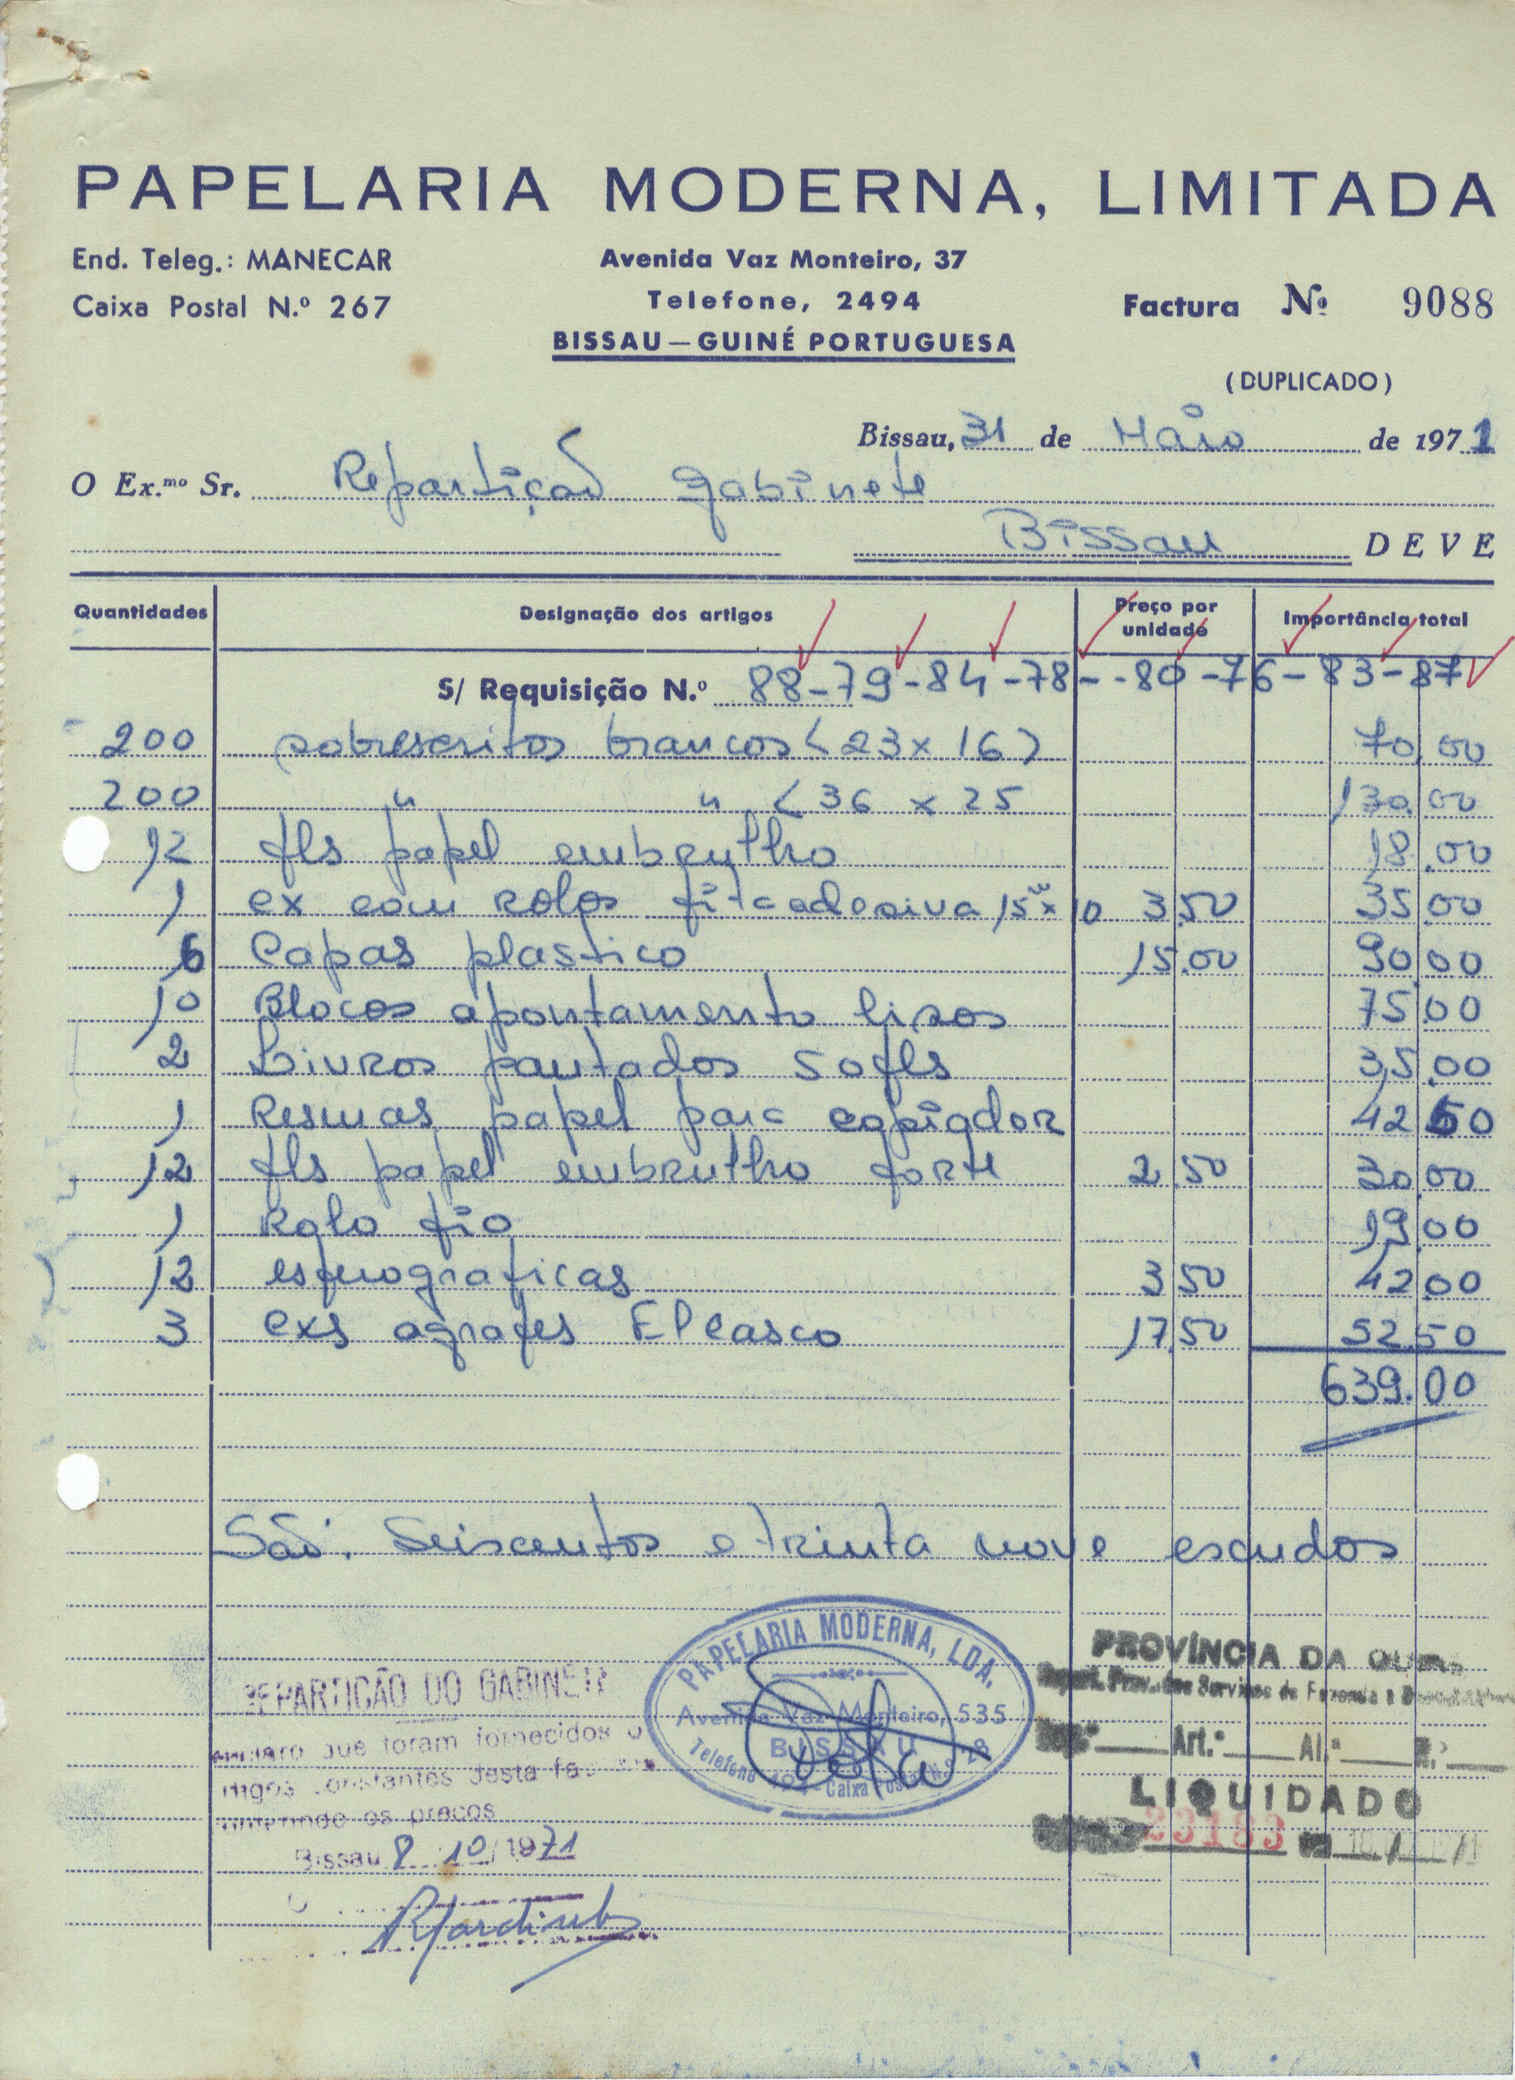 PAPELARIA MODERNA, LIMITADA
End. Teleg.: MANECAR
Caixa Postal N.º 267
Avenida Vaz Monteiro, 37
Telefone, 2494
BISSAU—GUINÉ PORTUGUESA
Factura Nº 9088
(DUPLICADO)
Bissau, 31 de Maio de 1971
O Ex.mo Sr. Repartição Gabinete
Bissau DEVE
Quantidades Designação dos artigos Preço por unidade Importância total
S/ Requisição N.º 88-79-84-78--80-76-83-87
200 sobrescritos brancos (23x16) 70,00
200 " " (36 x 25 130,00
12 fls papel embrulho 18,00
1 cx com rolos fita adesiva 15m x 10 3,50 35,00
6 Capas plastico 15,00 90,00
10 Blocos apontamento lisos 75,00
2 Livros pautados 50 fls 35,00
1 Resmas papel para copiador 42,50
12 fls papel embrulho forte 2,50 30,00
1 Rolo fio 19,00
12 esferograficas 3,50 42,00
3 cxs agrafes El Casco 17,50 52,50
639.00
São: Seiscentos e trinta nove escudos
PAPELARIA MODERNA, LDA.
Avenida Vaz Monteiro, 535
BISSAU
Telefone Caixa Postal
REPARTIÇÃO DO GABINETE
que foram fornecidos o
constantes desta
os preços
Bissau 8 10/1971
PROVÍNCIA DA
Repart. Prov. dos Serviços de Fazenda e
Art.º Al.ª
LIQUIDADO
33183